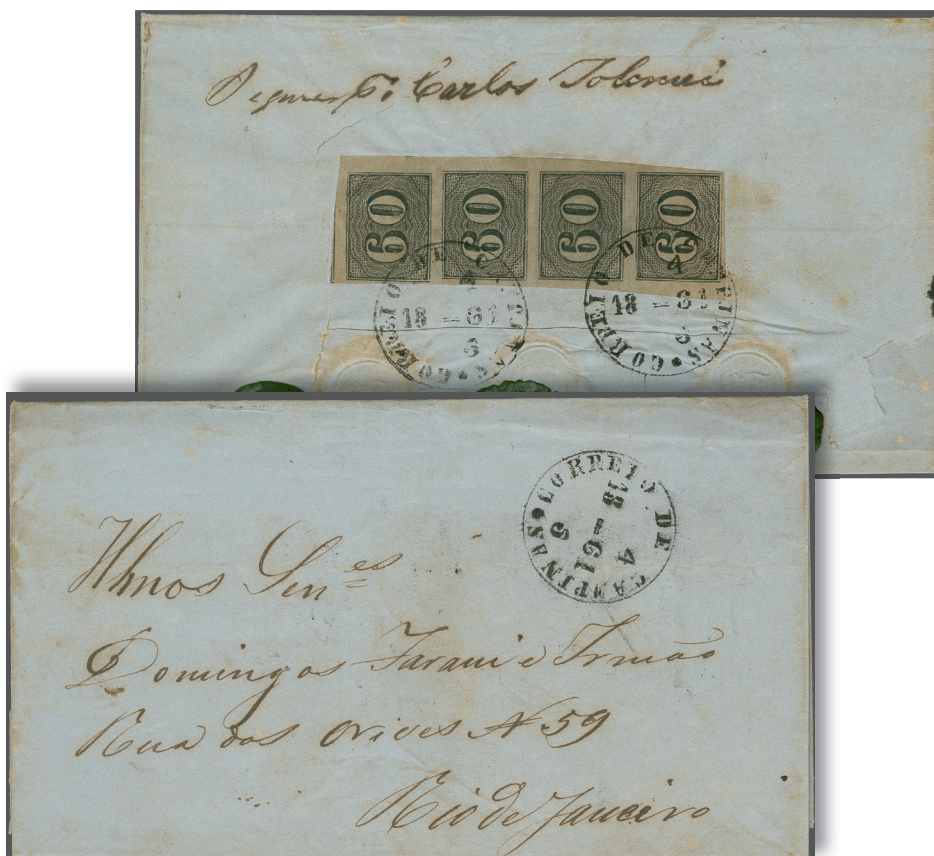 Carlos Tolomei
60 60 60 60
CORREIO DE CAMPINAS
4
18 61
5
CORREIO DE CAMPINAS
4
18 61
5
CORREIO DE CAMPINAS
4
18 61
5
Illmos Snres
Domingos Farani e Irmão
Rua dos Orives N 59
Rio de Janeiro